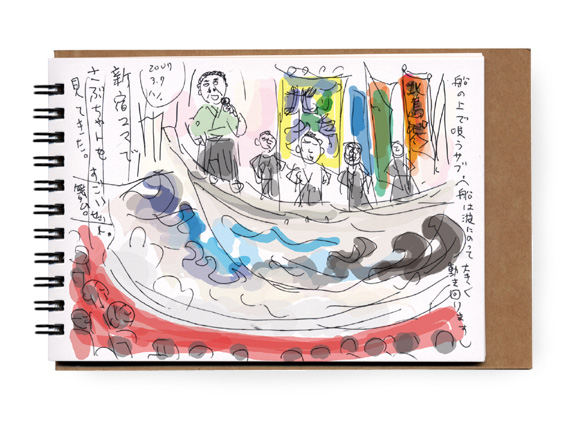 船の上で唄うサブ。
船は波にのって 大きく
動き回ります。
北島
北の
2007
3.9
新宿コマで
さぶちゃんを すごいセット。
見てきた。